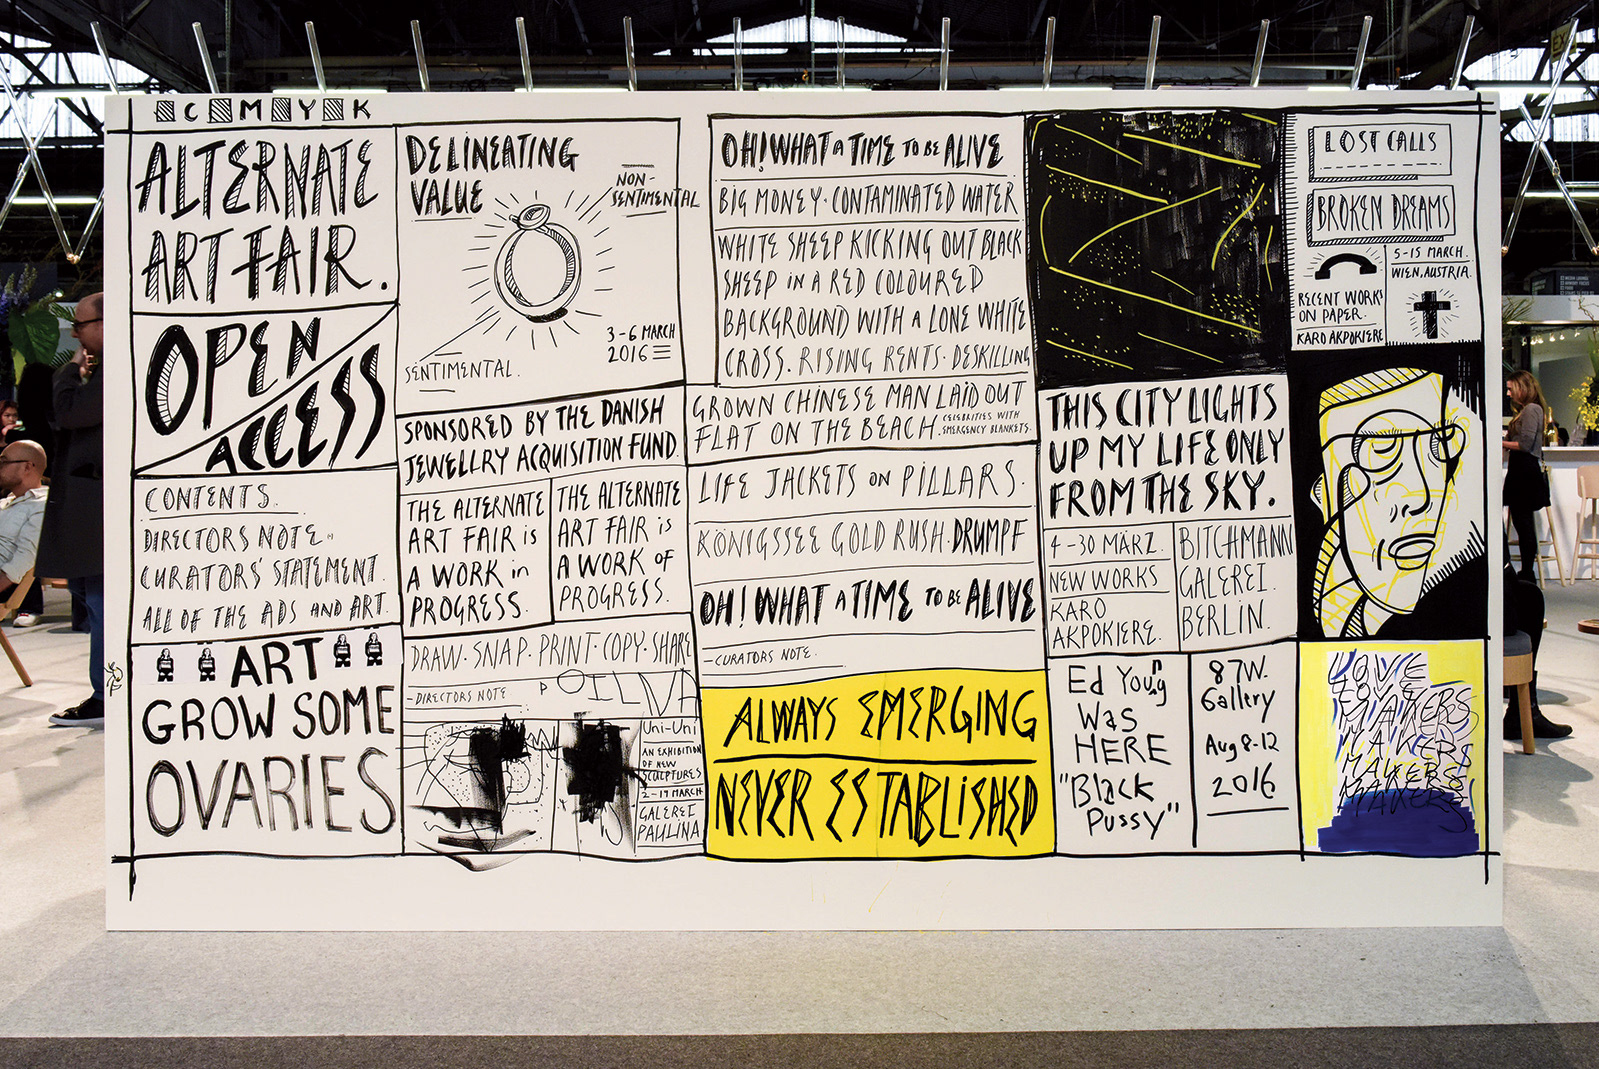 C M Y K
ALTERNATE
ART FAIR.
OPEN
ACCESS
CONTENTS.
DIRECTORS NOTE.
CURATORS' STATEMENT.
ALL OF THE ADS AND ART.
ART
GROW SOME
OVARIES
DELINEATING
VALUE
NON-
SENTIMENTAL
3-6 MARCH
2016
SENTIMENTAL.
SPONSORED BY THE DANISH
JEWELLRY ACQUISITION FUND.
THE ALTERNATE
ART FAIR is
A WORK in
PROGRESS.
THE ALTERNATE
ART FAIR is
A WORK OF
PROGRESS.
DRAW. SNAP. PRINT. COPY. SHARE
-DIRECTORS NOTE
Uni-Uni
AN EXHIBITION
OF NEW
SCULPTURES
2-19 MARCH
GALEREI
PAULINA
OH! WHAT A TIME TO BE ALIVE
BIG MONEY. CONTAMINATED WATER
WHITE SHEEP KICKING OUT BLACK
SHEEP in A RED COLOURED
BACKGROUND WITH A LONE WHITE
CROSS. RISING RENTS. DESKILLING
GROWN CHINESE MAN LAID OUT
FLAT ON THE BEACH. CELEBRITIES WITH
EMERGENCY BLANKETS.
LIFE JACKETS ON PILLARS.
KÖNIGSSEE GOLD RUSH. DRUMPF
OH! WHAT A TIME TO BE ALIVE
-CURATORS NOTE.
ALWAYS EMERGING
NEVER ESTABLISHED
THIS CITY LIGHTS
UP MY LIFE ONLY
FROM THE SKY.
4-30 MÄRZ.
NEW WORKS
KARO
AKPOKIERE.
BITCHMANN
GALEREI.
BERLIN.
Ed Young
Was
HERE
"Black
Pussy"
87W.
Gallery
Aug 8-12
2016
LOST CALLS
BROKEN DREAMS
5-15 MARCH.
WIEN, AUSTRIA.
RECENT WORKS
ON PAPER.
KARO AKPOKIERE
LOVE
LOVE
MAKERS
MAKERS
MAKERS
MAKERS